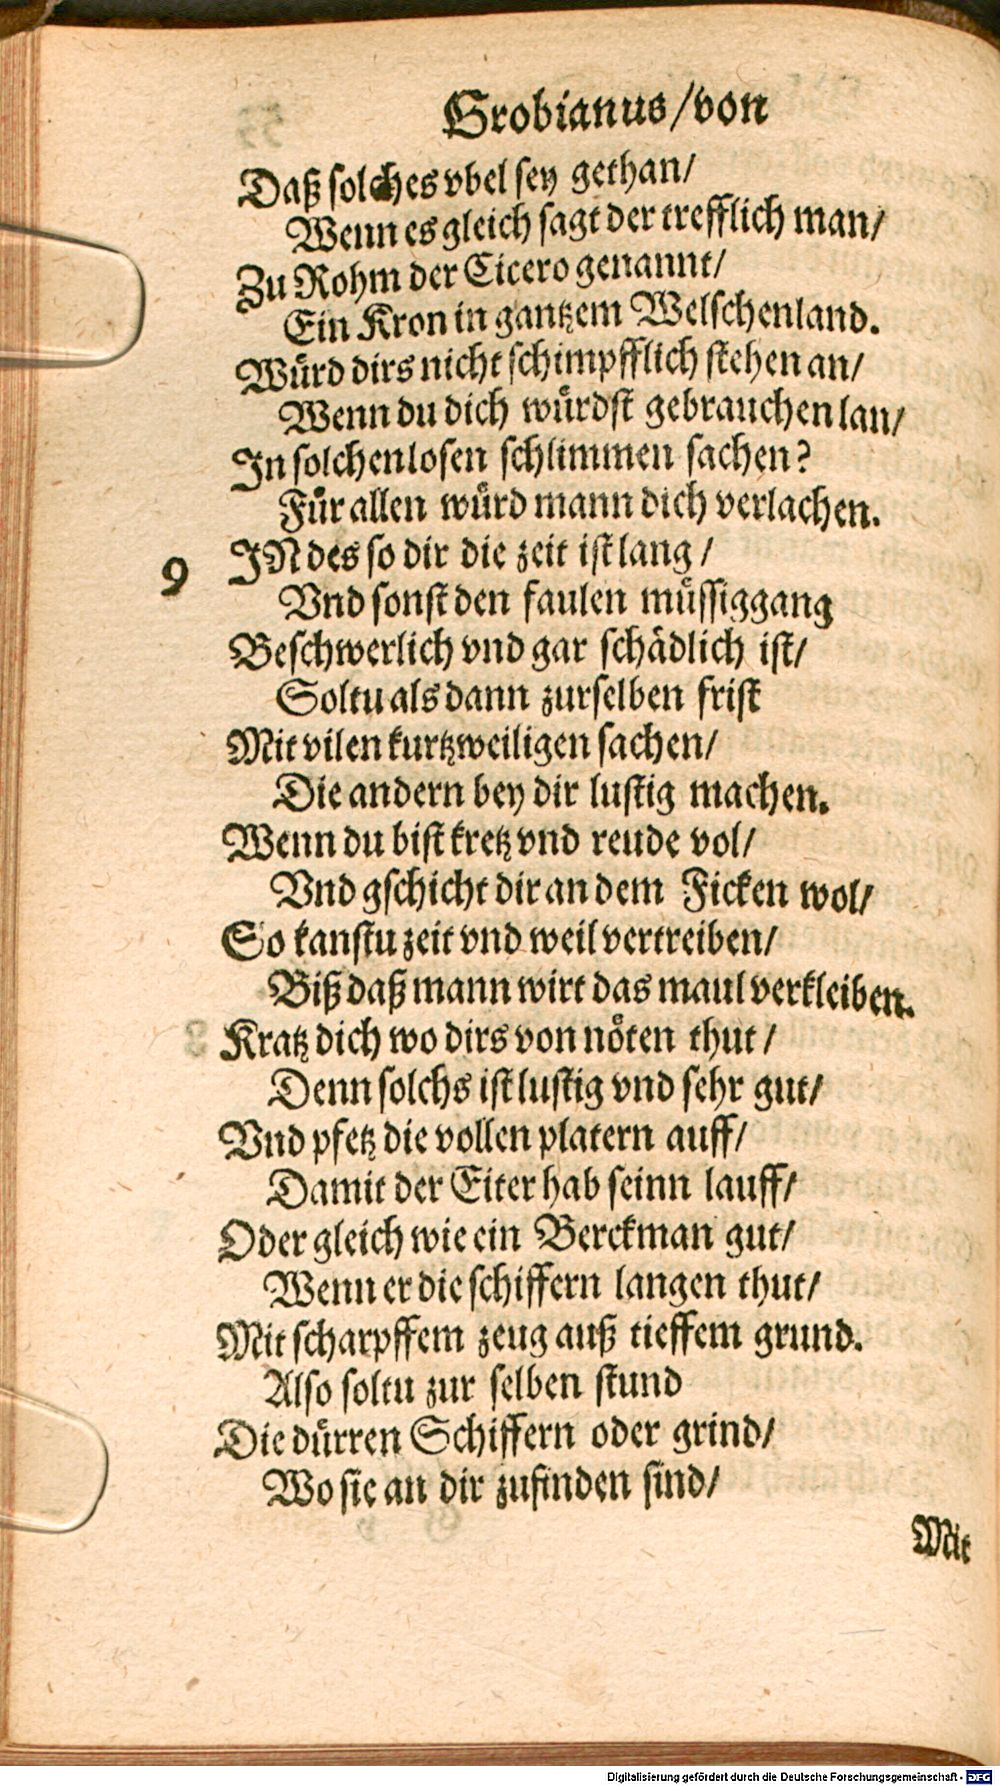 Grobianus/von
Daß solches vbel sey gethan/
Wenn es gleich sagt der trefflich man/
Zu Rohm der Cicero genannt/
Ein Kron in gantzem Welschenland.
Wuͤrd dirs nicht schimpfflich stehen an/
Wenn du dich wuͤrdst gebrauchen lan/
In solchen losen schlimmen sachen?
Fuͤr allen wuͤrd mann dich verlachen.
9 INdes so dir die zeit ist lang/
Vnd sonst den faulen muͤssiggang
Beschwerlich vnd gar schaͤdlich ist/
Soltu als dann zurselben frist
Mit vilen kurtzweiligen sachen/
Die andern bey dir lustig machen.
Wenn du bist kretz vnd reude vol/
Vnd gschicht dir an dem Ficken wol/
So kanstu zeit vnd weil vertreiben/
Biß daß mann wirt das maul verkleiben.
Kratz dich wo dirs von noͤten thut/
Denn solchs ist lustig vnd sehr gut/
Vnd pfetz die vollen platern auff/
Damit der Eiter hab seinn lauff/
Oder gleich wie ein Berckman gut/
Wenn er die schiffern langen thut/
Mit scharpffem zeug auß tieffem grund.
Also soltu zur selben stund
Die duͤrren Schiffern oder grind/
Wo sie an dir zufinden sind/
Mit
Digitalisierung gefördert durch die Deutsche Forschungsgemeinschaft - DFG